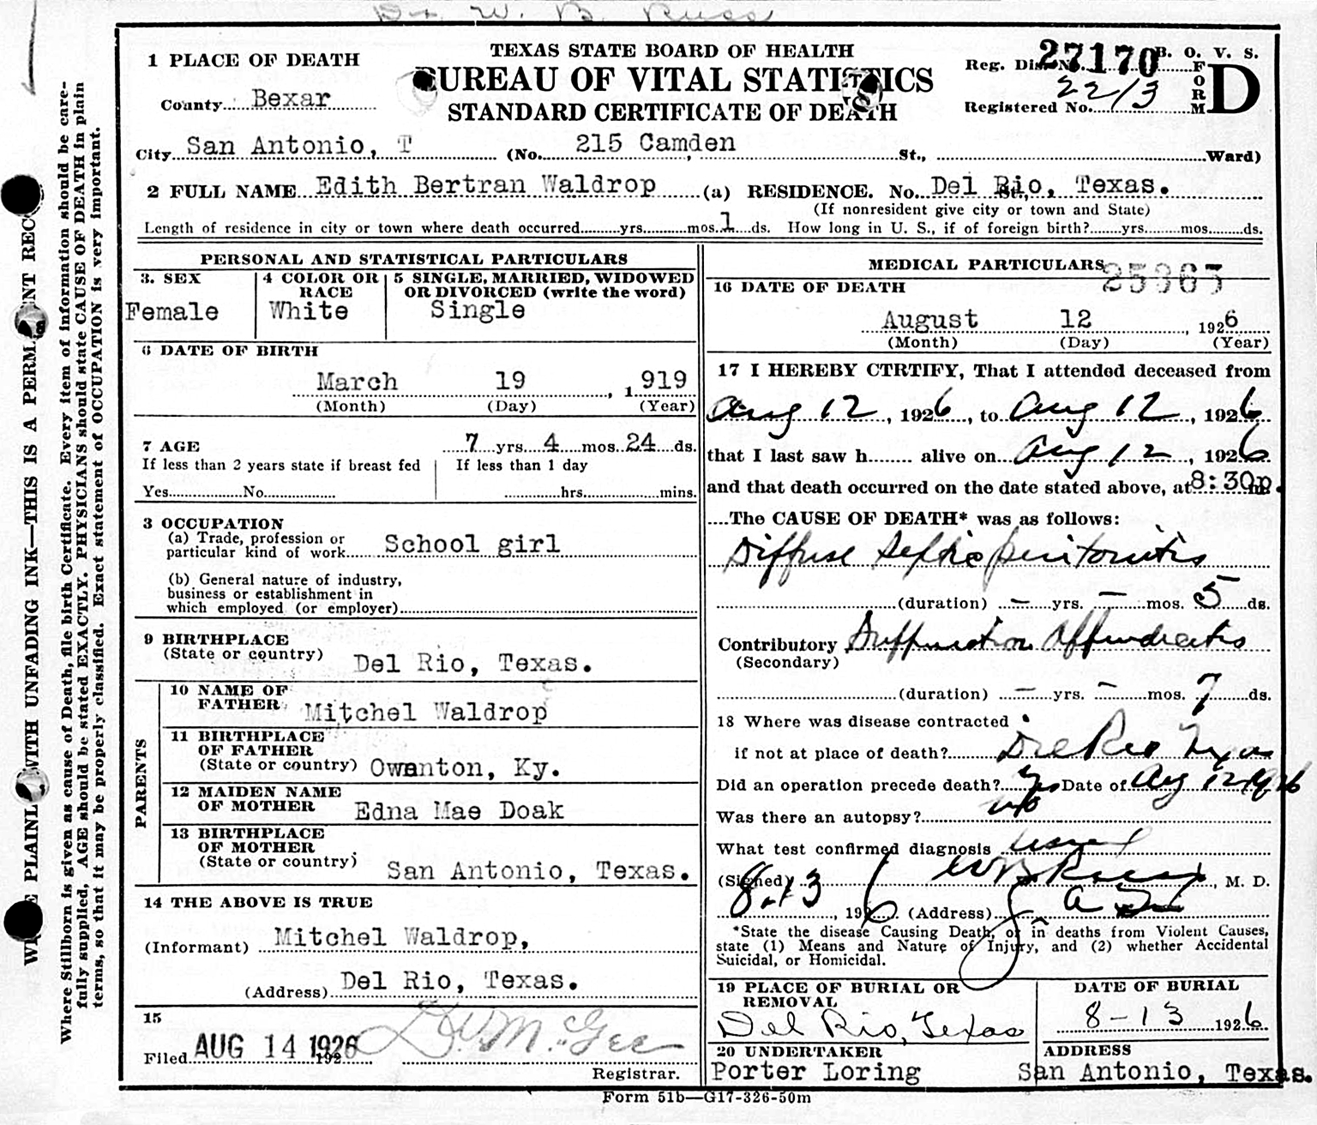 Dr W. B. Russ
TEXAS STATE BOARD OF HEALTH
BUREAU OF VITAL STATISTICS
STANDARD CERTIFICATE OF DEATH
B. O. V. S.
FORM D
Reg. Dis. No. 27170
Registered No. 2213
1 PLACE OF DEATH
County Bexar
City San Antonio, T (No. 215 Camden St., Ward)
2 FULL NAME Edith Bertran Waldrop (a) RESIDENCE. No. Del Rio, Texas.
(If nonresident give city or town and State)
Length of residence in city or town where death occurred yrs. mos. 1 ds. How long in U. S., if of foreign birth? yrs. mos. ds.
PERSONAL AND STATISTICAL PARTICULARS
3. SEX
Female
4 COLOR OR RACE
White
5 SINGLE, MARRIED, WIDOWED
OR DIVORCED (write the word)
Single
6 DATE OF BIRTH
March 19 , 1919
(Month) (Day) (Year)
7 AGE 7 yrs. 4 mos. 24 ds.
If less than 2 years state if breast fed
Yes No
If less than 1 day
hrs. mins.
3 OCCUPATION
(a) Trade, profession or
particular kind of work School girl
(b) General nature of industry,
business or establishment in
which employed (or employer)
9 BIRTHPLACE
(State or country) Del Rio, Texas.
PARENTS
10 NAME OF
FATHER Mitchel Waldrop
11 BIRTHPLACE
OF FATHER
(State or country) Owenton, Ky.
12 MAIDEN NAME
OF MOTHER Edna Mae Doak
13 BIRTHPLACE
OF MOTHER
(State or country) San Antonio, Texas.
14 THE ABOVE IS TRUE
(Informant) Mitchel Waldrop,
(Address) Del Rio, Texas.
15
Filed AUG 14 1926
Registrar.
MEDICAL PARTICULARS
25363
16 DATE OF DEATH
August 12 , 1926
(Month) (Day) (Year)
17 I HEREBY CTRTIFY, That I attended deceased from
Aug 12, 1926, to Aug 12, 1926
that I last saw h alive on Aug 12, 1926
and that death occurred on the date stated above, at 8:30p. m.
The CAUSE OF DEATH* was as follows:
Diffuse septic peritonitis
(duration) — yrs. — mos. 5 ds.
Contributory Suppurative Appendicitis
(Secondary)
(duration) — yrs. — mos. 7 ds.
18 Where was disease contracted
if not at place of death? Del Rio Texas
Did an operation precede death? Yes Date of Aug 12 1926
Was there an autopsy? no
What test confirmed diagnosis usual
(Signed) W B Russ, M. D.
8.13, 1926 (Address) S A Tex
*State the disease Causing Death, or in deaths from Violent Causes,
state (1) Means and Nature of Injury, and (2) whether Accidental
Suicidal, or Homicidal.
19 PLACE OF BURIAL OR
REMOVAL
Del Rio, Texas
DATE OF BURIAL
8-13 1926
20 UNDERTAKER
Porter Loring
ADDRESS
San Antonio, Texas.
Form 51b—G17-326-50m
WRITE PLAINLY WITH UNFADING INK—THIS IS A PERMANENT RECORD
Where Stillborn is given as cause of Death, file birth Certificate. Every item of information should be care-
fully supplied. AGE should be stated EXACTLY. PHYSICIANS should state CAUSE OF DEATH in plain
terms, so that it may be properly classified. Exact statement of OCCUPATION is very important.